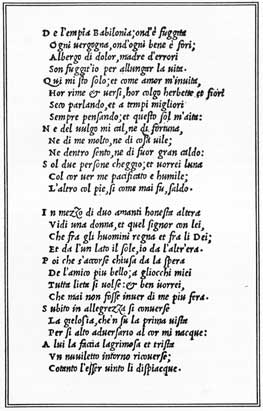 De l'empia Babilonia; ond'è fuggita
Ogni uergogna, ond'ogni bene è fori;
Albergo di dolor, madre d'errori
Son fuggit'io per allungar la uita.
Qui mi sto solo; et come amor m'inuita,
Hor rime & uersi, hor colgo herbette et fiori
Seco parlando, et a tempi migliori
Sempre pensando; et questo sol m'aita:
Ne del uulgo mi cal, ne di fortuna,
Ne di me molto, ne di cosa uile;
Ne dentro sento, ne di fuor gran caldo:
Sol due persone cheggio; et uorrei luna
Col cor uer me pacificato e humile;
L'altro col pie, si come mai fu, saldo.
In mezzo di duo amanti honesta altera
Vidi una donna, et quel signor con lei,
Che fra gli huomini regna et fra li Dei;
Et da l'un lato il sole, io da l'altr'era.
Poi che s'accorse chiusa da la spera
De l'amico piu bello; a gliocchi miei
Tutta lieta si uolse: & ben uorrei,
Che mai non fosse inuer di me piu fera.
Subito in allegrezza si conuerse
La gielosia, che'n su la prima uista
Per si alto aduersario al cor mi nacque:
A lui la faccia lagrimosa et trista
Vn nuuiletto intorno ricouerse;
Cotanto l'esser uinto li dispiacque.